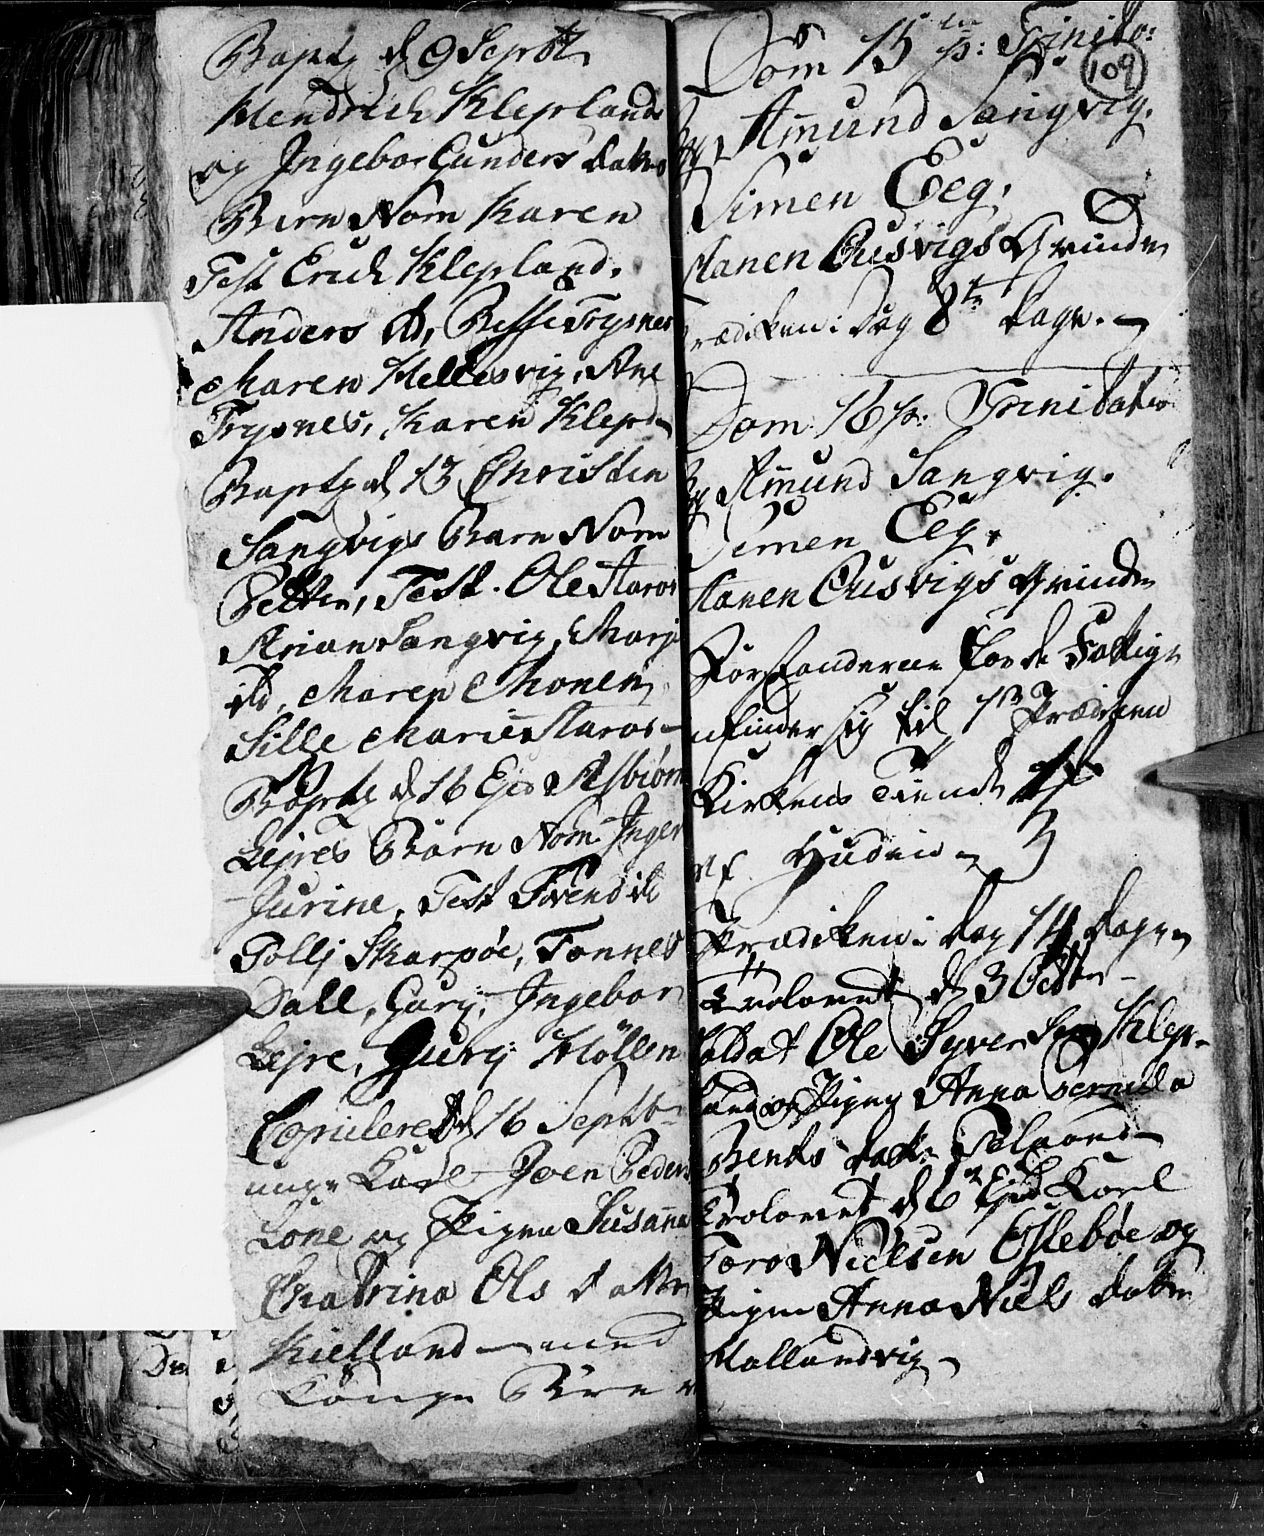 Bapt: d 9 Septbr
Hendrich Klepland
og Ingebor Gunders datters
Barn Nom Karen
Test Erich Klepland.
Anders ibd, Besse Trysnes
Maren Hellesvig, Ane
Trysnes, Karen Klepl
Bapt: d 13 Christen
Sangvigs Barn Nom
Petter, Test. Ole Aaros
Arian Sangvig, Marj
ibd, Maren Monen
Sille Marie Aaros
Bapt: d 16 Ejd Asbiørn
Lejres Barn Nom. Inger
Jurine, Test Svend ibd
Tollj Skarpøe, Tønnes
Dall, Gurj, Ingebor
Lejre, Gurj Møllen
Copulered d 16 Septbr
unge Karl Joen Peders
Lone og Pigen Susana
Chatrina Ols datter
Kielland med
Konge Breve
109
Dom 15 p: Trinita:
Amund Sangvig.
Simen Eeg.
Hanen Ousvigs Qvinde
Prædiken i Dag 8te dage.
Dom 16 p: Trinitatis
Amund Sangvig.
Simen Eeg.
Hanen Ousvigs Qvinde
Forstanderne for de Fattige
infinder sig til Prædiken
Kirkens Tiende
af Huden
Prædiken i dag 14 dage
Trolovet d 3 Octbr
Soldat Ole Syversen Klep-
land og Pigen Anna Pernilla
Bents datter
Trolovet d 6 Ejd Karl
Tore Nielsen Eslebøe og
Pigen Anna Niels datter
Hallandvig